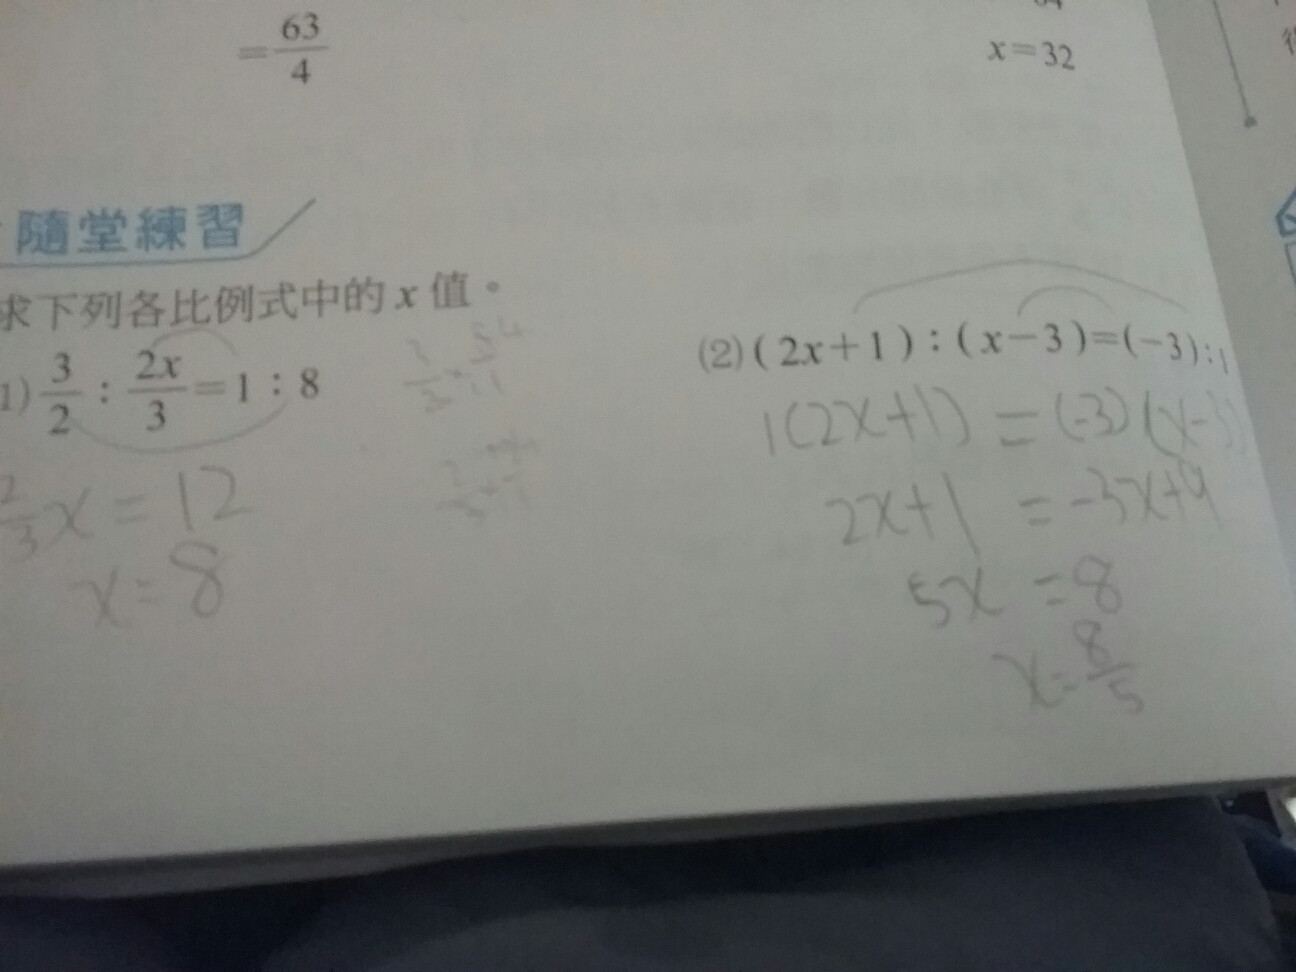 = 63/4
x=32
隨堂練習
求下列各比例式中的 x 值。
1) 3/2 : 2x/3 = 1 : 8
(2) (2x+1) : (x-3)=(-3):1
2/3 x = 12
x = 8
1(2x+1) = (-3)(x-3)
2x+1 = -3x+9
5x = 8
x = 8/5